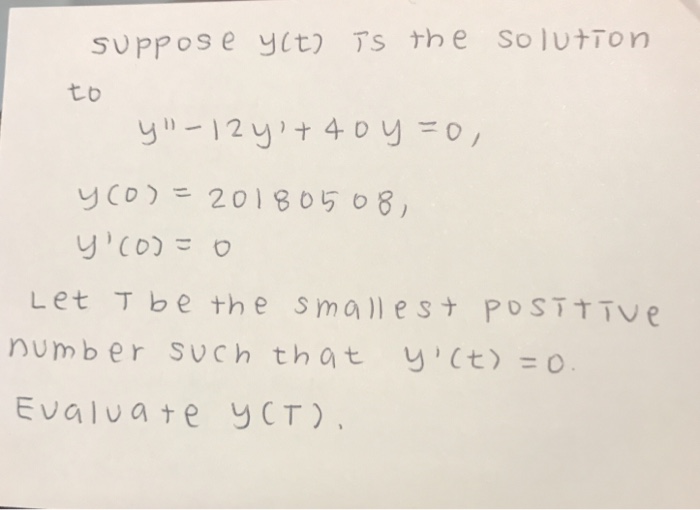 suppose y(t) is the solution
to
y" - 12y' + 40y = 0,
y(0) = 20180508,
y'(0) = 0
Let T be the smallest positive
number such that y'(t) = 0.
Evaluate y(T).